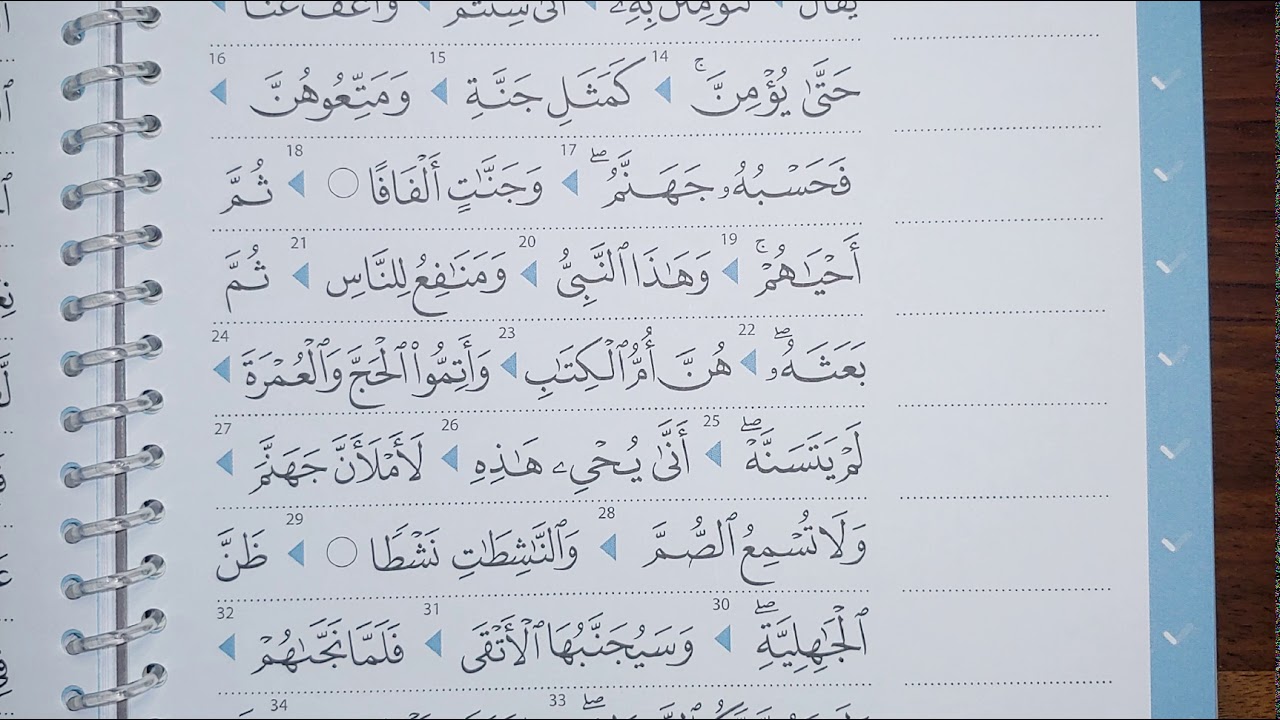 حَتَّىٰ يُؤْمِنَّ ۚ 14 كَمَثَلِ جَنَّةِ 15 وَمَتِّعُوهُنَّ 16
فَحَسْبُهُۥ جَهَنَّمُ ۖ 17 وَجَنَّـٰتٍ أَلْفَافًا ○ 18 ثُمَّ
أَحْيَـٰهُمْ ۚ 19 وَهَـٰذَا ٱلنَّبِىُّ 20 وَمَنَـٰفِعُ لِلنَّاسِ 21 ثُمَّ
بَعَثَهُۥ ۖ 22 هُنَّ أُمُّ ٱلْكِتَـٰبِ 23 وَأَتِمُّوا۟ ٱلْحَجَّ وَٱلْعُمْرَةَ 24
لَمْ يَتَسَنَّهْ ۖ 25 أَنَّىٰ يُحْىِۦ هَـٰذِهِ 26 لَأَمْلَأَنَّ جَهَنَّمَ 27
وَلَا تُسْمِعُ ٱلصُّمَّ 28 وَٱلنَّـٰشِطَـٰتِ نَشْطًا ○ 29 ظَنَّ
ٱلْجَـٰهِلِيَّةِ ۖ 30 وَسَيُجَنَّبُهَا ٱلْأَتْقَى 31 فَلَمَّا نَجَّىٰهُمْ 32
33 34